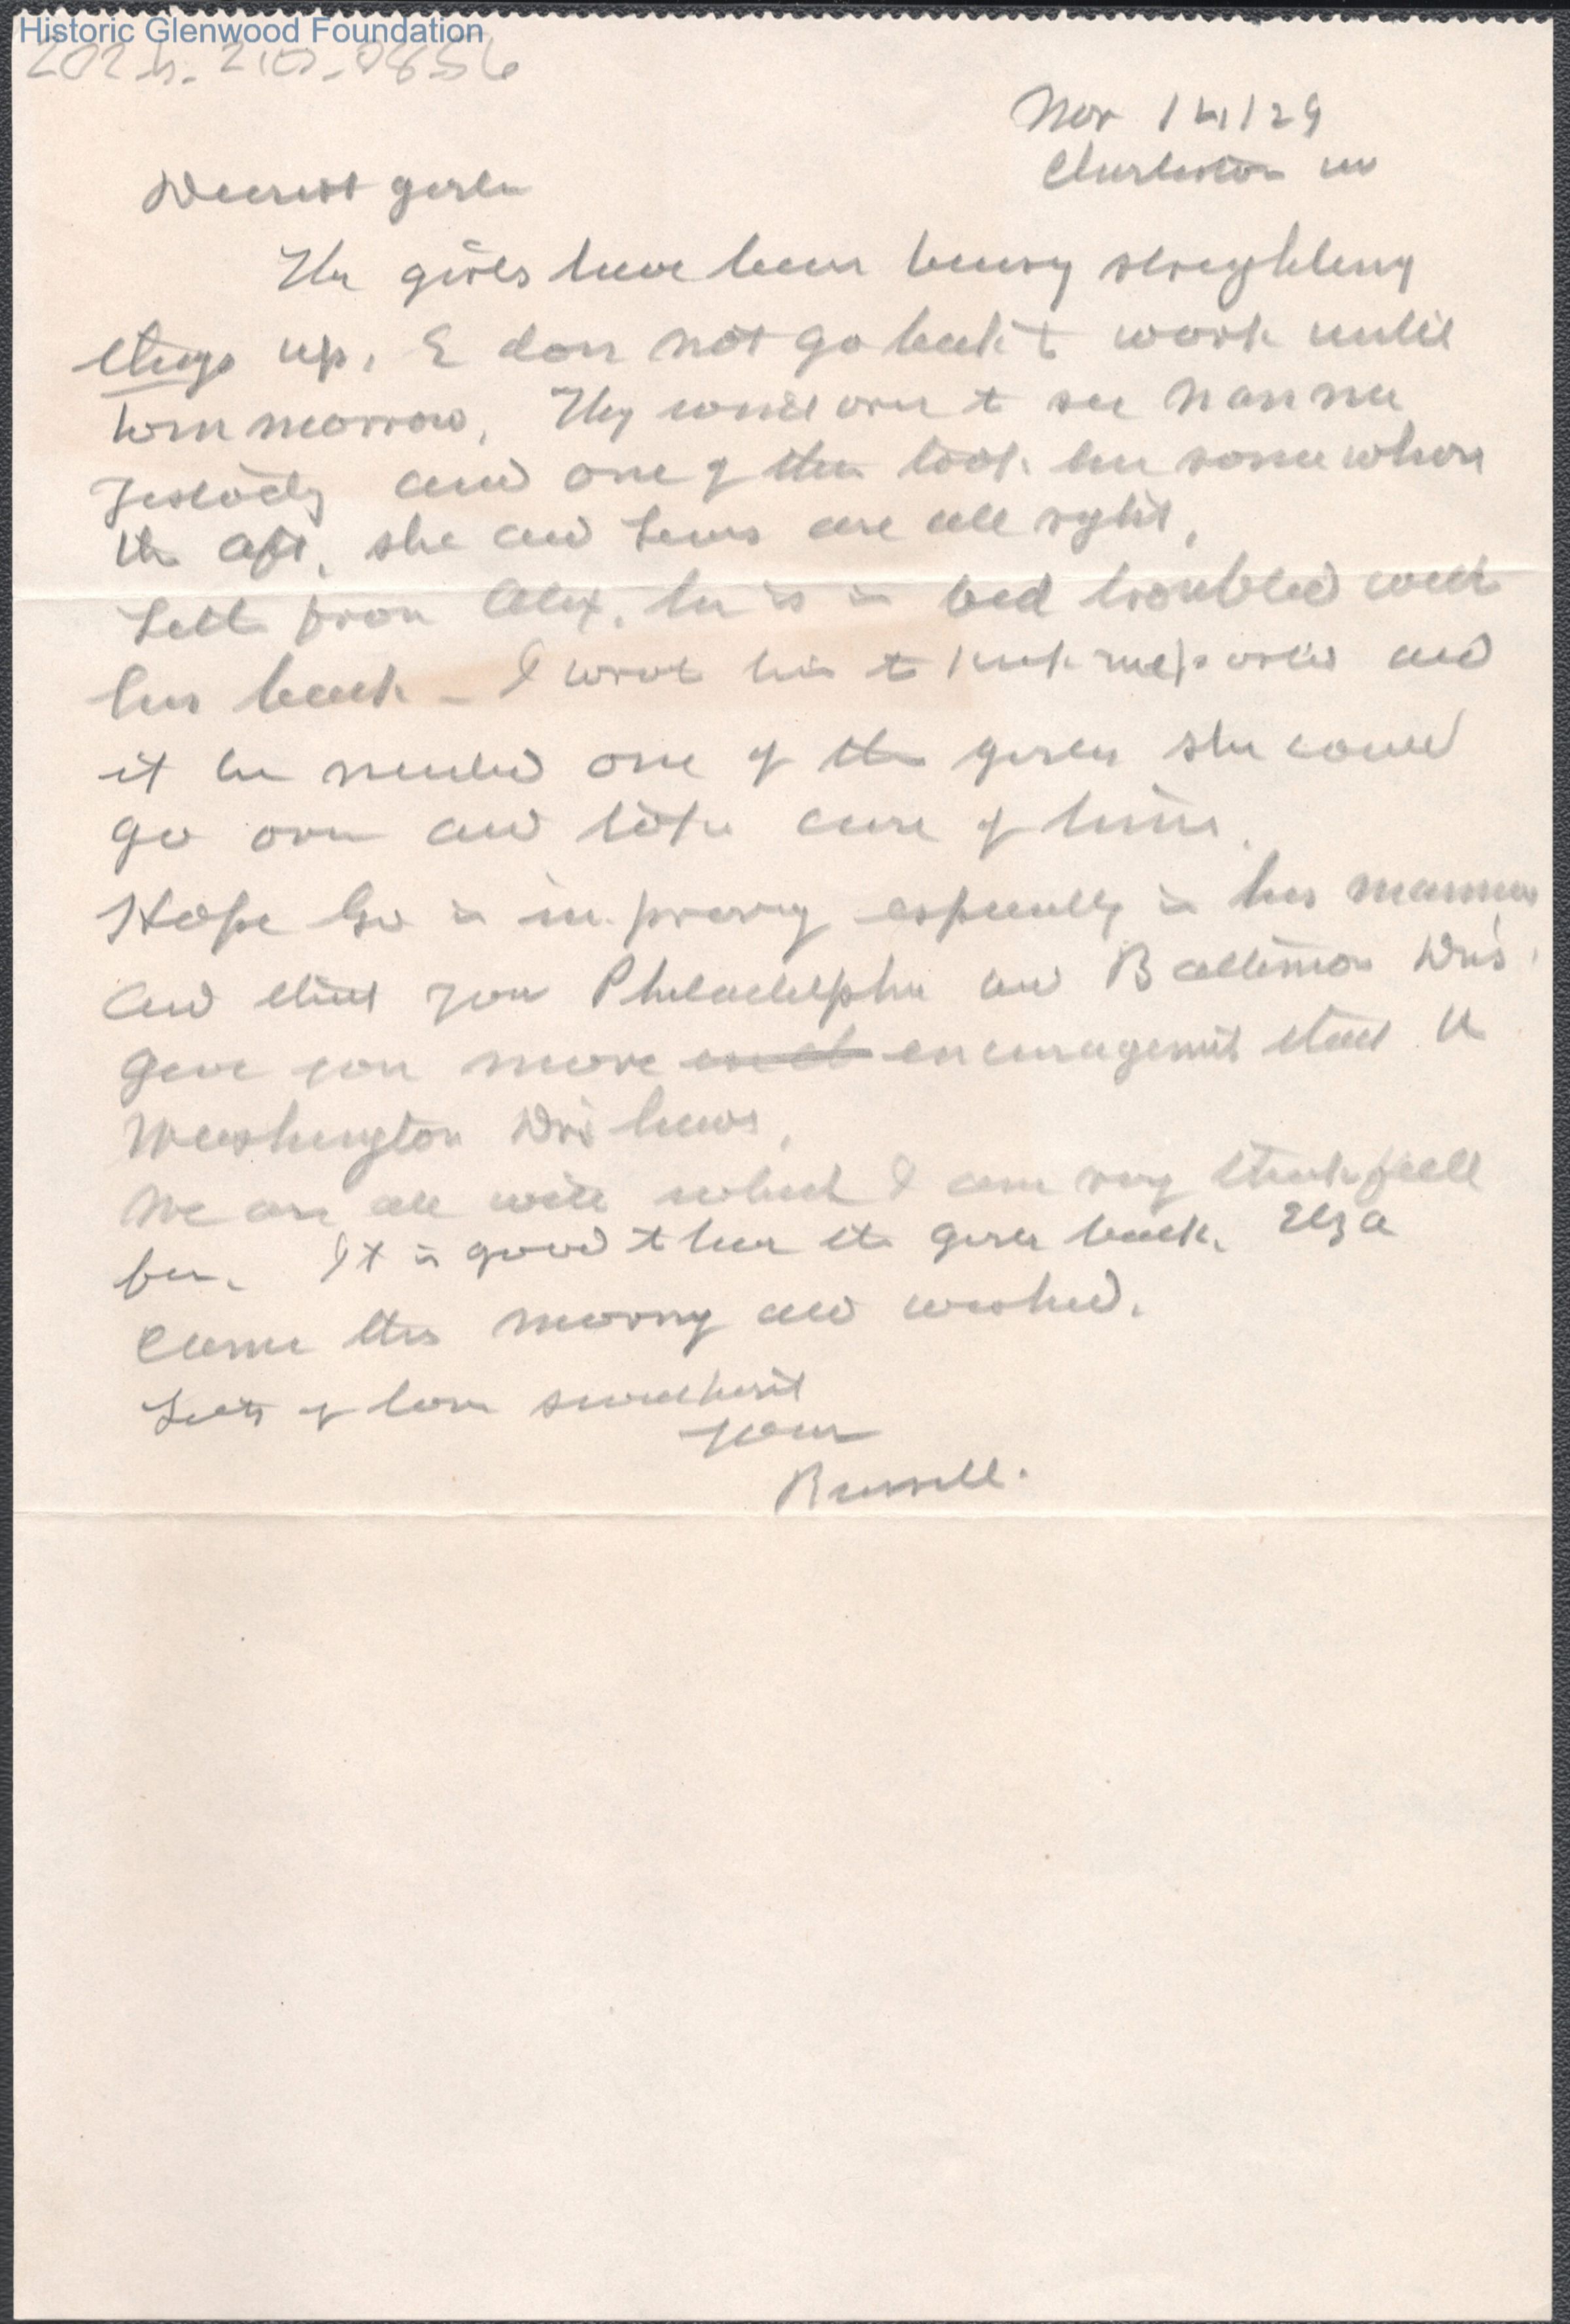 Historic Glenwood Foundation
2024.210.0856
Nov 14/29
Charleston W
Dearest girlie
The girls have been bussy streightleng
things up. E does not go back to work until
tommorrow. They went over to see Nannie
yestody and one of them took her somewhere
this aft. she and Lewis are all right.
Lett from Alex. he is in bed troubled with
his back - I wrote him to keep me posted and
if he needed one of the girles she could
go over and take care of him.
Hope Go is improving especially in his manners
and that your Philadelphia and Baltimore Drs.
gave you more encouragement than the
Washington Drs have.
We are all well which I am very thankfull
for. It is good to have the girls back. Elza
came this morning and washed.
Lots of love sweethart
your
Russell.